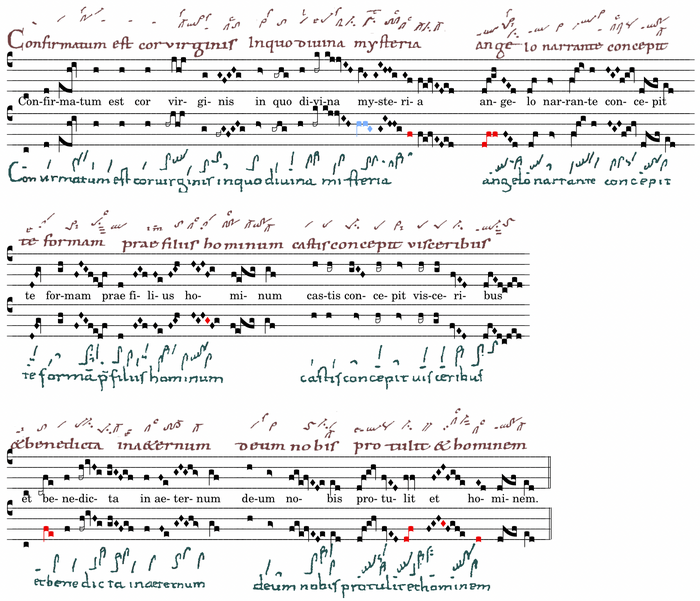 Confirmatum est corvirginis Inquo divina mysteria ange lo narrante concepit
Con-fir-ma-tum est cor vir- gi- nis in quo di-vi-na my-ste- ri- a an- ge- lo nar-ran-te con- ce- pit
Convirmatum est corvirginis inquo divina misteria angelo narrante concepit
te formam prae filiis hominum castis concepit visceribus
te for-mam prae fi- li- us ho- mi- num cas-tis con- ce- pit vis-ce- ri- bus
te formā p̄ filiis hominum castis concepit visceribus
&benedicta in&ernum deum nobis protulit & hominem
et be- ne-dic- ta in ae- ter- num de-um no- bis pro-tu- lit et ho- mi-nem.
et benedicta inaeternum deum nobis protulit et hominem